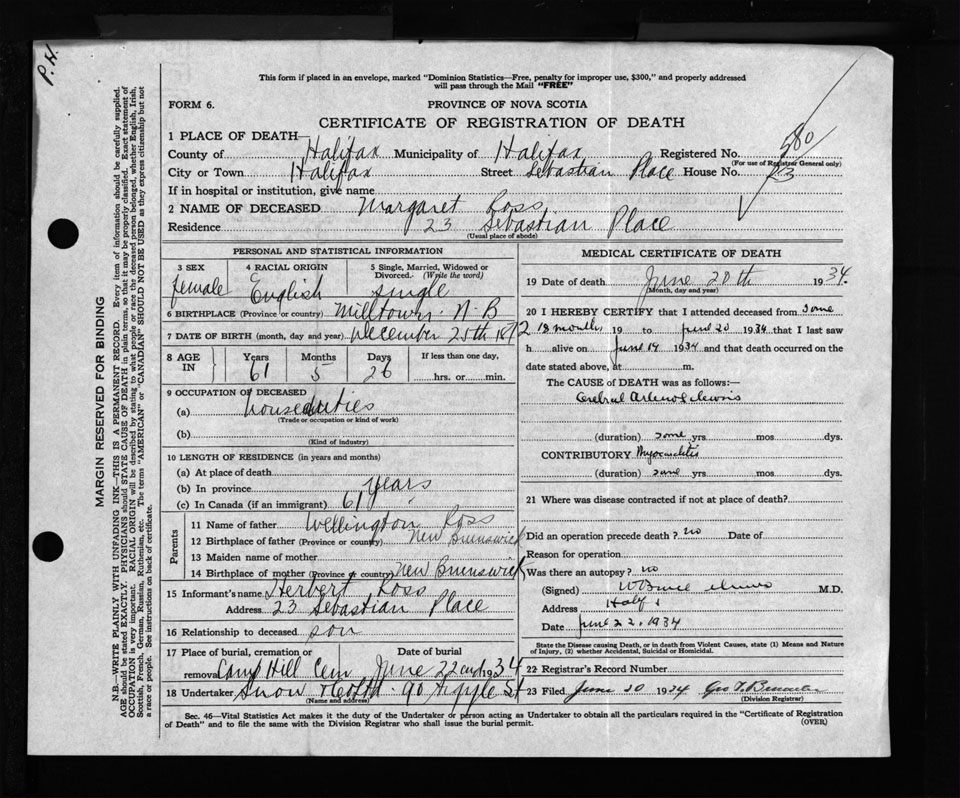 P.H.
This form if placed in an envelope, marked "Dominion Statistics—Free, penalty for improper use, $300," and properly addressed
will pass through the Mail "FREE"
FORM 6. PROVINCE OF NOVA SCOTIA
CERTIFICATE OF REGISTRATION OF DEATH
1 PLACE OF DEATH
County of Halifax Municipality of Halifax Registered No. 580
(For use of Registrar General only)
City or Town Halifax Street Sebastian Place House No. 23
If in hospital or institution, give name
2 NAME OF DECEASED Margaret Ross
Residence 23 Sebastian Place
(Usual place of abode)
PERSONAL AND STATISTICAL INFORMATION
3 SEX 4 RACIAL ORIGIN 5 Single, Married, Widowed or
Divorced. (Write the word)
female English single
6 BIRTHPLACE (Province or country) Milltown N-B
7 DATE OF BIRTH (month, day and year) December 25th 1872
8 AGE IN Years Months Days If less than one day,
61 5 26 hrs. or min.
9 OCCUPATION OF DECEASED
(a) house duties
(Trade or occupation or kind of work)
(b)
(Kind of industry)
10 LENGTH OF RESIDENCE (in years and months)
(a) At place of death
(b) In province
(c) In Canada (if an immigrant) 61 years
Parents
11 Name of father Wellington Ross
12 Birthplace of father (Province or country) New Brunswick
13 Maiden name of mother
14 Birthplace of mother (Province or country) New Brunswick
15 Informant's name Herbert Ross
Address 23 Sebastian Place
16 Relationship to deceased son
17 Place of burial, cremation or Date of burial
removal Camp Hill Cem June 22 1934
18 Undertaker Snow 90 Argyle St
(Name and address)
MEDICAL CERTIFICATE OF DEATH
19 Date of death June 20th 1934.
(Month, day and year)
20 I HEREBY CERTIFY that I attended deceased from some
18 months 19 to June 20 1934 that I last saw
h alive on June 19 1934 and that death occurred on the
date stated above, at m.
The CAUSE of DEATH was as follows:—
Cerebral Arteriosclerosis
(duration) some yrs mos. dys.
CONTRIBUTORY Myocarditis
(duration) some yrs. mos. dys.
21 Where was disease contracted if not at place of death?
Did an operation precede death? no Date of
Reason for operation
Was there an autopsy? no
(Signed) M.D.
Address Halifax
Date June 22, 1934
State the Disease causing Death, or in Death from Violent Causes, state (1) Means and Nature
of Injury, (2) whether Accidental, Suicidal or Homicidal.
22 Registrar's Record Number
23 Filed June 20 1934 Geo
(Division Registrar)
Sec. 46—Vital Statistics Act makes it the duty of the Undertaker or person acting as Undertaker to obtain all the particulars required in the "Certificate of Registration
of Death" and to file the same with the Division Registrar who shall issue the burial permit. (OVER)
MARGIN RESERVED FOR BINDING
N.B.—WRITE PLAINLY WITH UNFADING INK—THIS IS A PERMANENT RECORD. Every item of information should be carefully supplied.
AGE should be stated EXACTLY. PHYSICIANS should STATE CAUSE OF DEATH in plain terms, so that it may be properly classified. Exact statement of
OCCUPATION is very important. RACIAL ORIGIN will be described by stating to what people or race the deceased person belonged, whether English, Irish,
Scottish, French, German, Russian, Ruthenian, etc. The terms "AMERICAN" or "CANADIAN" SHOULD NOT BE USED as they express citizenship but not
a race or people. See instructions on back of certificate.